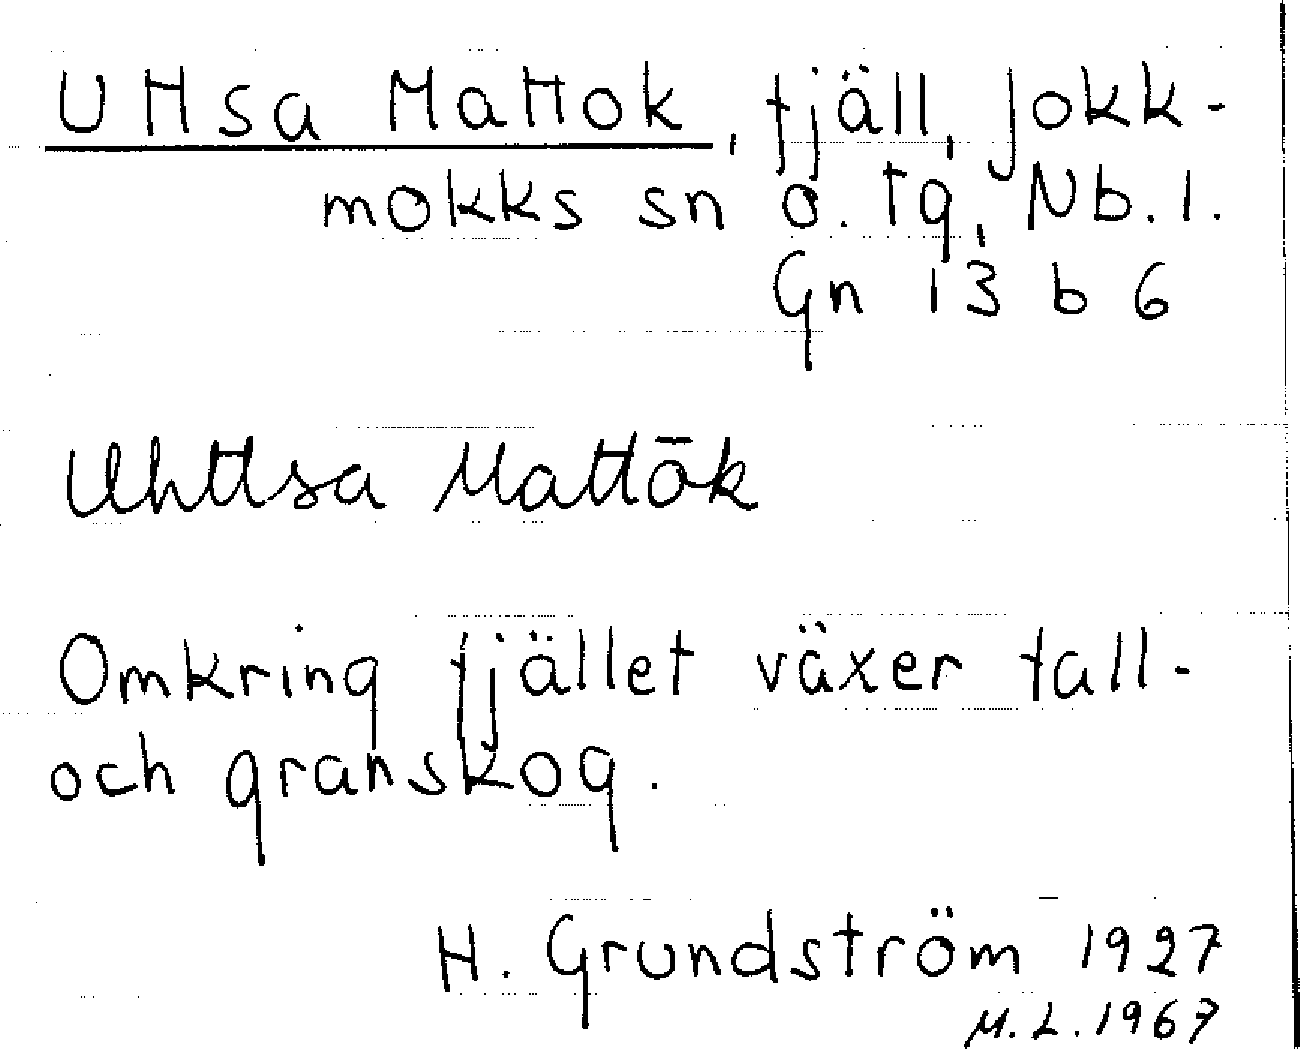 Uttsa Mattok, fjäll, Jokk-
mokks sn o. tg, Nb. l.
Gn 13 b 6
Uhttsa Mattōk
Omkring fjället växer tall-
och granskog.
H. Grundström 1927
M.L. 1967